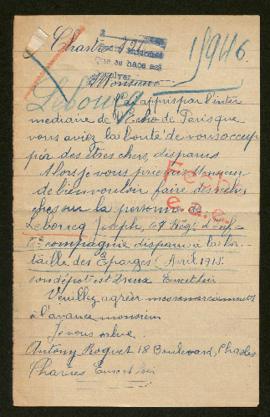 Chartres
18946
Monsieur
Lebourg
J'ai appris par l'inter
mediaire de l'Echo de Paris que
vous aviez la bonté de vous occup
per des êtres chers, disparus
Alors je vous prie
de bien vouloir faire des recher
ches sur la personne de
Lebourg Joseph,
compagnie disparu a la ba
taille des Eparges (Avril 1915.
son dépot est Dreux Eure et Loir
Veuillez agréer mes remerciements
a l'avance monsieur
Je vous salue
Antony Roguet 18 Boulevard Chasles
Chartres Eure et Loir